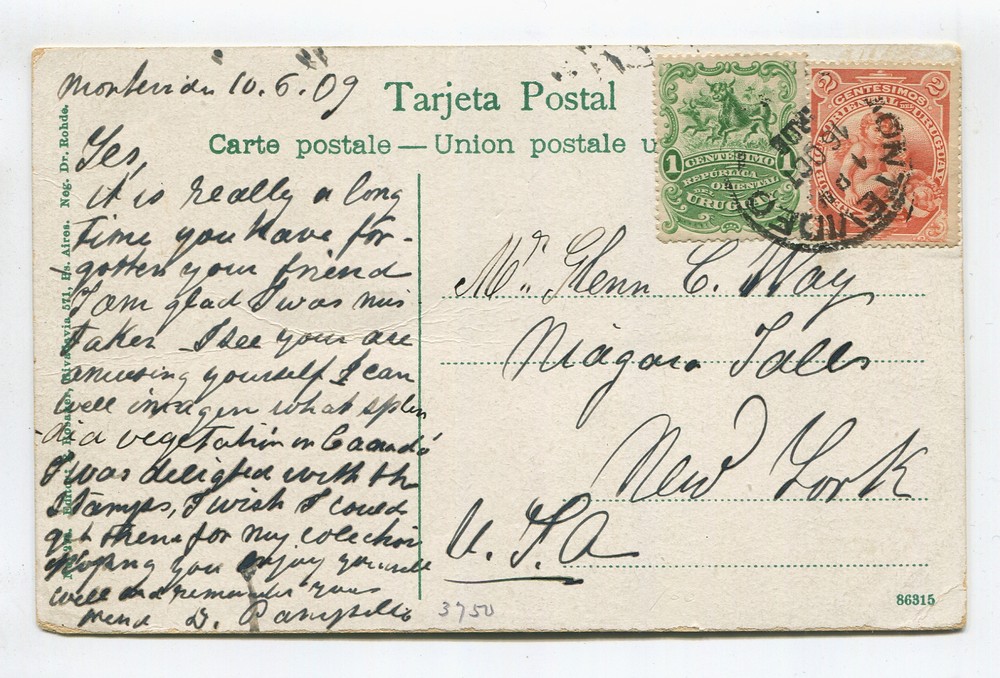 Montevideo 10.6.09
Tarjeta Postal
Carte postale — Union postale u
Yes,
it is really a long
time you have for-
gotten your friend
I am glad I was mis
taken I see your are
amusing yourself I can
well imagen what splen
did vegetation in Canadá
I was deligted with the
stamps, I wish I could
get them for my colection
Hoping you enjoy yourself
well and remember your
friend D.
Mr. Glenn C. Way
Niagara Falls
New York
U.S.A
1 1
CENTESIMO
REPÚBLICA
ORIENTAL
DEL
URUGUAY
2 2
CENTESIMOS
REPUBLICA ORIENTAL DEL URUGUAY
MONTEVIDEO
Rosauer, Rivadavia 571, Bs. Aires. Neg. Dr. Rohde.
3750
86315